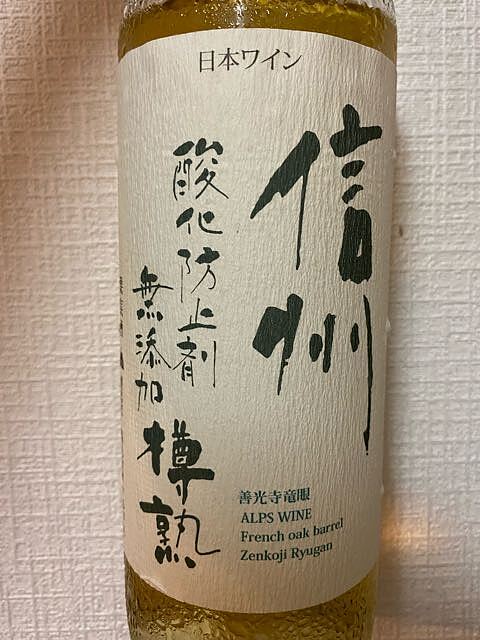 日本ワイン
信州
酸化防止剤
無添加
樽熟
善光寺竜眼
ALPS WINE
French oak barrel
Zenkoji Ryugan